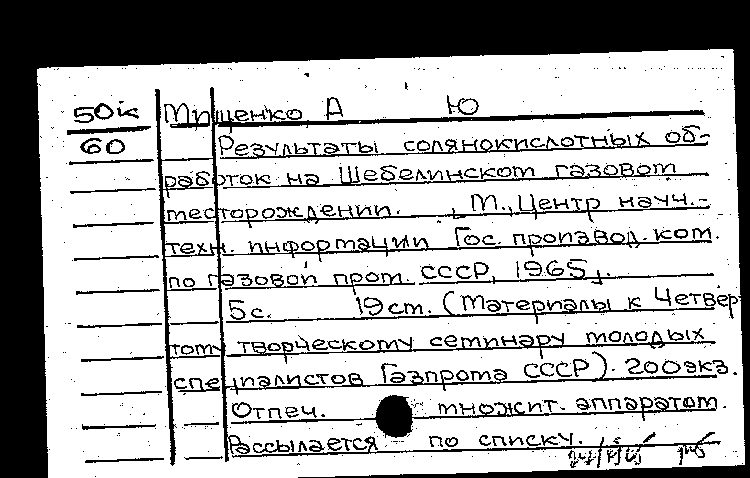 50к Мищенко А Ю
60 Результаты солянокислотных об-
работок на Шебелинском газовом
месторождении. , М., Центр науч.-
техн. информации Гос. производ. ком.
по газовой пром. СССР, 1965,.
5с. 19см. (Материалы к Четвер
тому творческому семинару молодых
специалистов Газпрома СССР). 200экз.
Отпеч. множит. аппаратом.
Рассылается по списку.